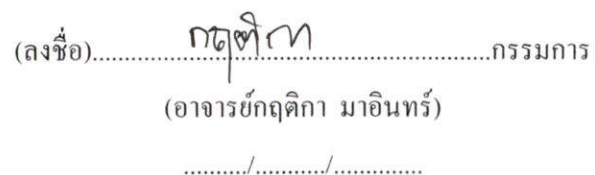 (ลงชื่อ)......กฤติกา......กรรมการ
(อาจารย์กฤติกา มาอินทร์)
........../.........../..............